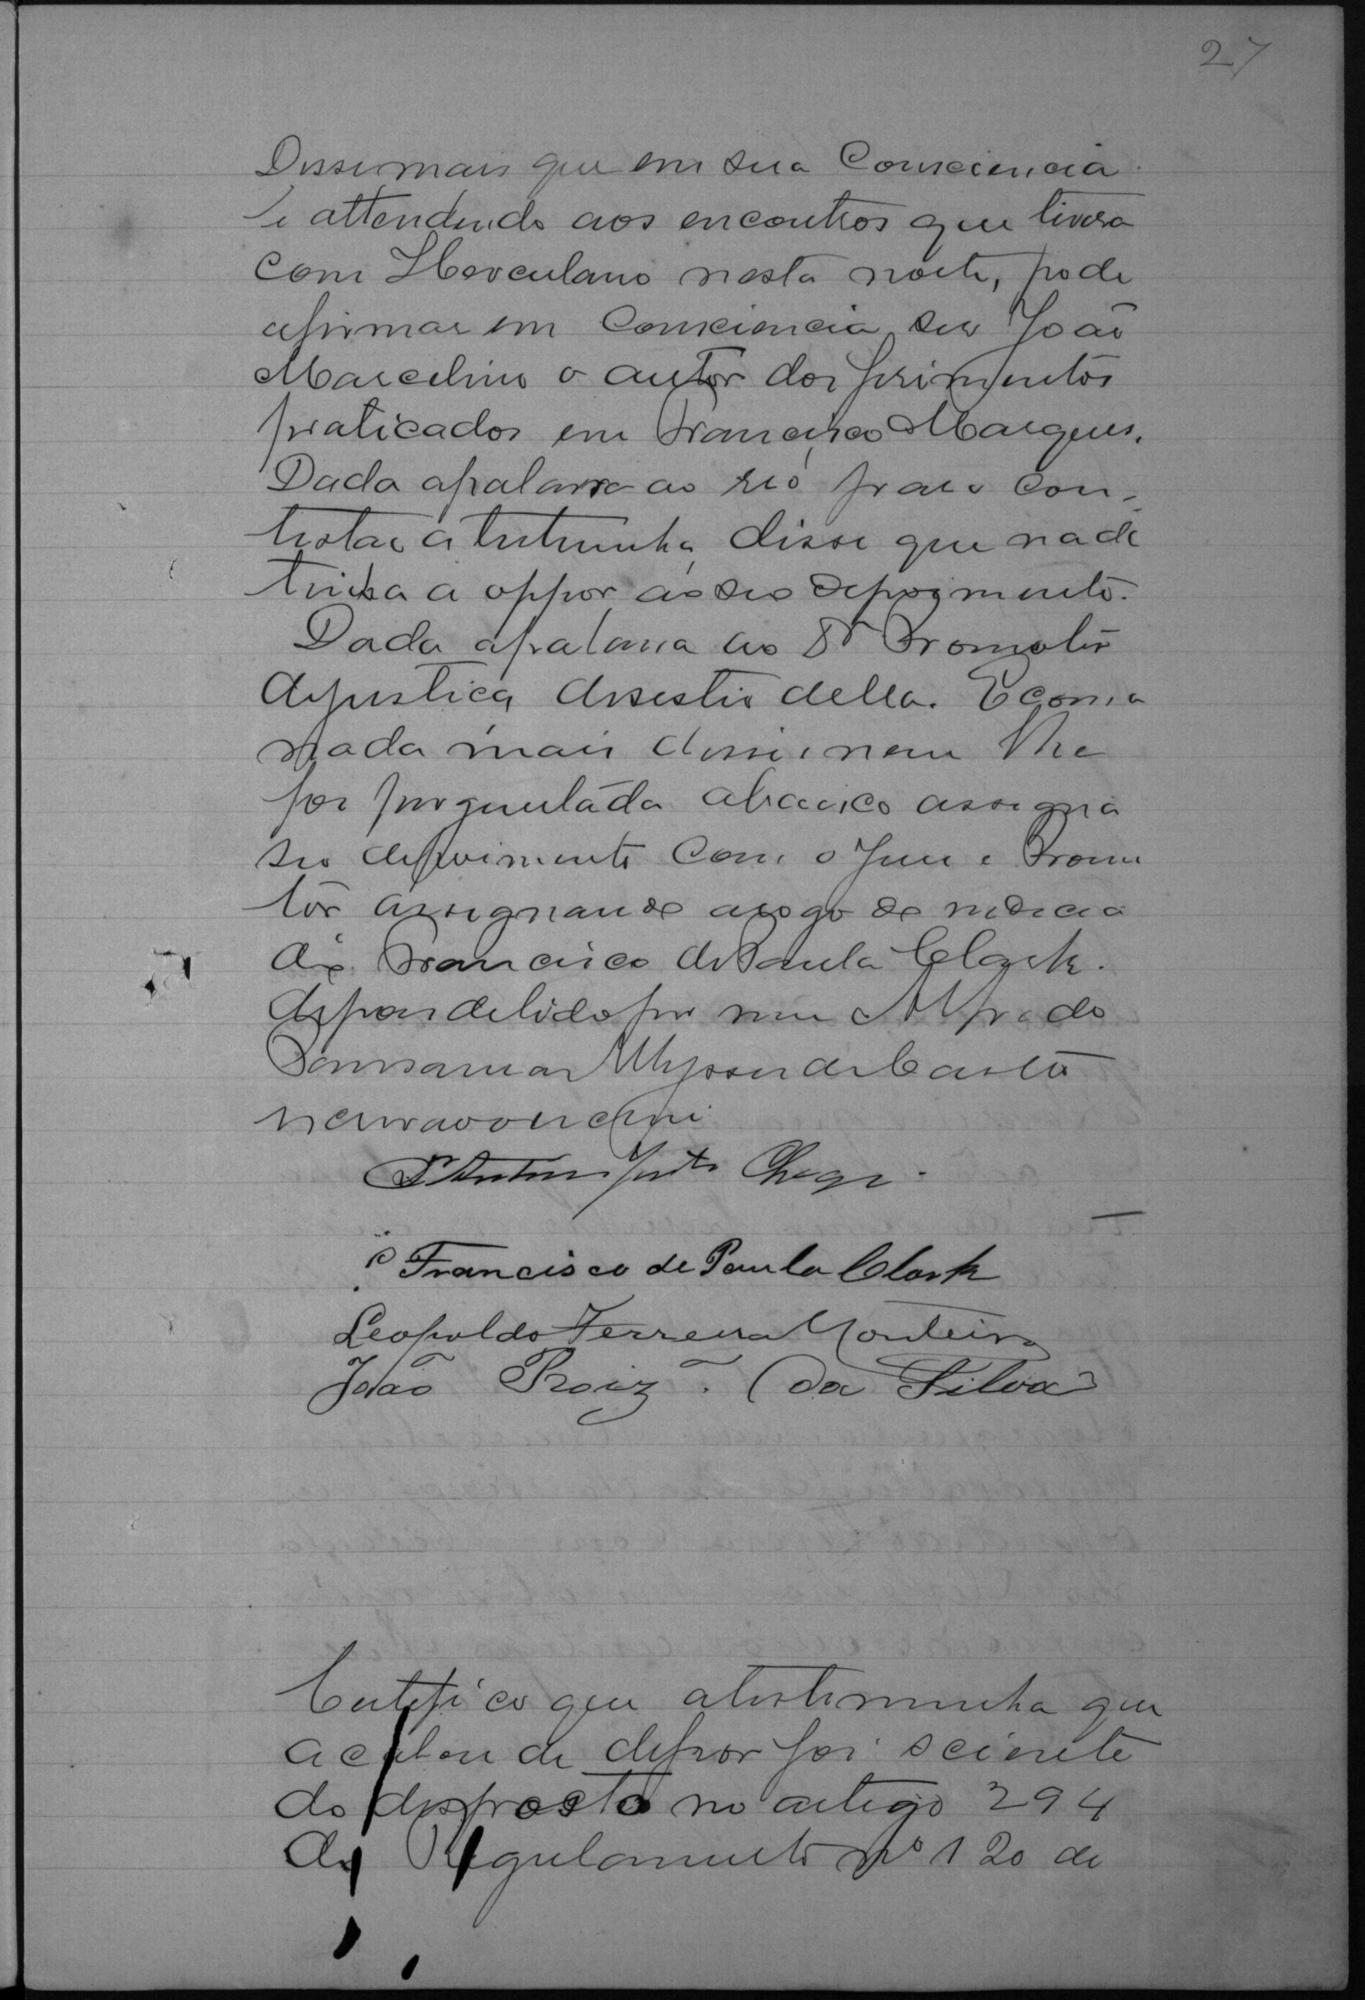 27
Disse mais que em sua Consciencia
e attendendo aos encontros que tivera
com Herculano nesta noite, pode
afirmar em Consciencia ser João
Marcelino o autor dos ferimentos
praticados em Francisco Marques.
Dada apalavra ao réo para con-
testar a testemunha, disse que nada
tinha a oppor ao seo depoimento.
Dada apalavra ao Dr Promotor
dejustiça desestio della. E como
nada mais disse, nem lhe
foi perguntado abaixo assigna
seo depoimento com o Juiz e Promo
tor assignando arogo do
Francisco dePaula Clark.
depois delido por mim Alfredo
Ulysses de Castro
escrivi.
Dr Antonio
Francisco de Paula Clark
Leopoldo Ferreira Monteiro
João Roiz. da Silva
Certifico que atestemunha que
acabou de depor foi sciente
do disposto no artigo 294
do Regulamento nº 120 de